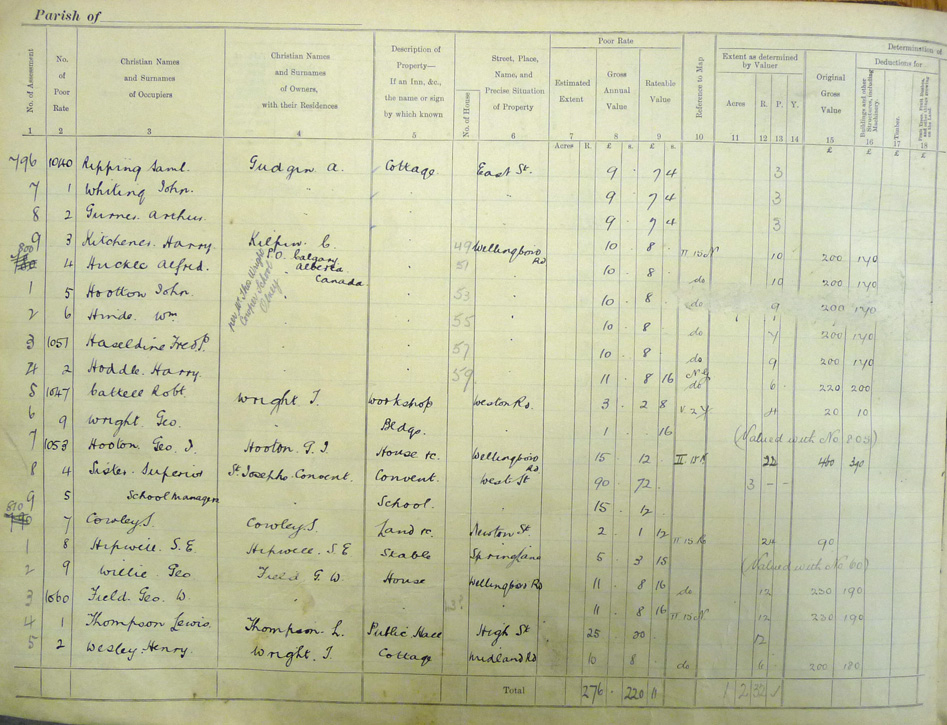 Parish of
Determination of
No. of Assessment
No. of Poor Rate
Christian Names and Surnames of Occupiers
Christian Names and Surnames of Owners, with their Residences
Description of Property— If an Inn, &c., the name or sign by which known
No. of House
Street, Place, Name, and Precise Situation of Property
Poor Rate
Estimated Extent
Gross Annual Value
Rateable Value
Reference to Map
Extent as determined by Valuer
Acres R. P. Y.
Original Gross Value
Deductions for
Buildings and other Structures, including Machinery.
Timber.
1 2 3 4 5 6 7 8 9 10 11 12 13 14 15 16 17 18
Acres R. £ s. £ s. £ £ £ £
796 1040 Ripping Saml. Gudgin A. Cottage East St. 9 . 7 4 3
7 1 Whiting John. " . " 9 . 7 4 3
8 2 Gurney Arthur. . . 9 . 7 4 3
9 3 Kitchener Harry Kilpin C. . 49 Wellingboro Rd 10 . 8 . II 15 N 10 200 140
P.O. Calgary
Alberta
Canada
per Mr Thos Wright
Cowper School
Olney
800 4 Huckle Alfred. " . 51 10 . 8 . do 10 200 140
1 5 Hootton John. . 53 10 . 8 . do 9 200 140
2 6 Hinde Wm . . 55 10 . 8 . do 200 140
3 1051 Haseldine Fred P. . . 57 10 . 8 . do 9 200 140
4 2 Hoddle. Harry. . . 59 11 . 8 16 do 6 220 200
5 1047 Cattell Robt. Wright T. Workshop Weston Rd. 3 . 2 8 4 20 10
6 9 Wright. Geo. . Bldgs. . 1 . 16 (Valued with No 805)
7 1053 Hooton. Geo. J. Hooton. G. J. House &c. Wellingboro Rd 15 12 . II 15 N 22 460 390
8 4 Sister. Superior St. Josephs Convent. Convent. West St 90 . 72 . 3 - -
9 5 School Managers School. 15 . 12 .
810 7 Cowley J. Cowley J. Land &c. Newton St. 2 . 1 12 24 90
1 8 Hipwell. S. E. Hipwell. S. E. Stable Spring Lane 5 . 3 15 (Valued with No 60)
2 9 Willie Geo Field G. W. House Wellingboro Rd 11 . 8 16 do 12 230 190
3 1060 Field. Geo. W . . 11 . 8 16 II 15 N 12 230 190
4 1 Thompson Lewis. Thompson. L. Public Hall High St 25 . 20 . 12
5 2 Wesley. Henry. Wright. T. Cottage Midland Rd 10 . 8 . do 6 200 180
Total 276 . 220 11 1 2 32